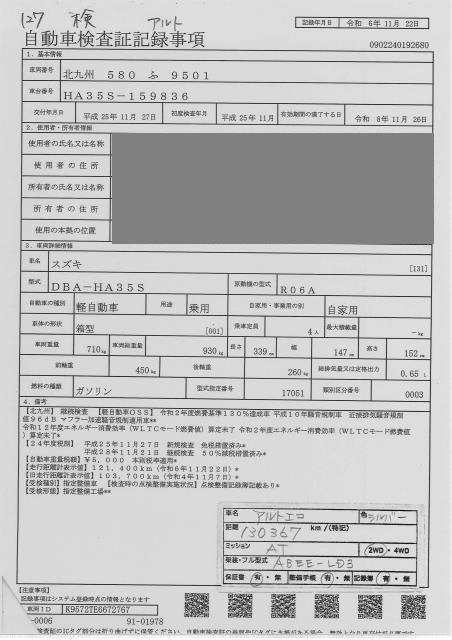 127 検 アルト
記録年月日 令和 6年11月22日
自動車検査証記録事項
0902240192680
1．基本情報
車両番号 北九州 580 ふ 9501
車台番号 HA35S－159836
交付年月日 平成 25年11月 27日 初度検査年月 平成 25年 11月 有効期間の満了する日 令和 8年11月 26日
2．使用者・所有者情報
使用者の氏名又は名称
使用者の住所
所有者の氏名又は名称
所有者の住所
使用の本拠の位置
3．車両詳細情報
車名 スズキ [131]
型式 DBA－HA35S 原動機の型式 R06A
自動車の種別 軽自動車 用途 乗用 自家用・事業用の別 自家用
車体の形状 箱型 [001] 乗車定員 4人 最大積載量 －kg
車両重量 710kg 車両総重量 930kg 長さ 339cm 幅 147cm 高さ 152cm
前軸重 450kg 後軸重 260kg 総排気量又は定格出力 0.65 L
燃料の種類 ガソリン 型式指定番号 17051 類別区分番号 0003
4．備考
【北九州】 継続検査 【軽自動車OSS】 令和2年度燃費基準130％達成車 平成10年騒音規制車 近接排気騒音規制
値96dB マフラー加速騒音規制適用車**
令和12年度エネルギー消費効率（WLTCモード燃費値）算定未了 令和2年度エネルギー消費効率（WLTCモード燃費値
）算定未了*
【24年度税制】 平成25年11月27日 新規検査 免税措置済み*
平成28年11月21日 継続検査 50％減税措置済み*
【自動車重量税額】¥5，000 本則税率適用*
【走行距離計表示値】121，400km（令和6年11月22日）*
【旧走行距離計表示値】103，700km（令和4年11月7日）*
【受検種別】指定整備車 【検査時の点検整備実施状況】点検整備記録簿記載あり*
【受検形態】指定整備工場**
車名 アルトエコ 色 シルバー
距離 130367 km/(特記)
ミッション AT 2WD・4WD
架装・フル型式 ABEE-LD3
保証書 有・無 整備手帳 有・無 記録簿 有・無
【注意事項】
記録事項はシステム登録時点の情報となります
車両ID K9572TB6672767
-0006 91-01978